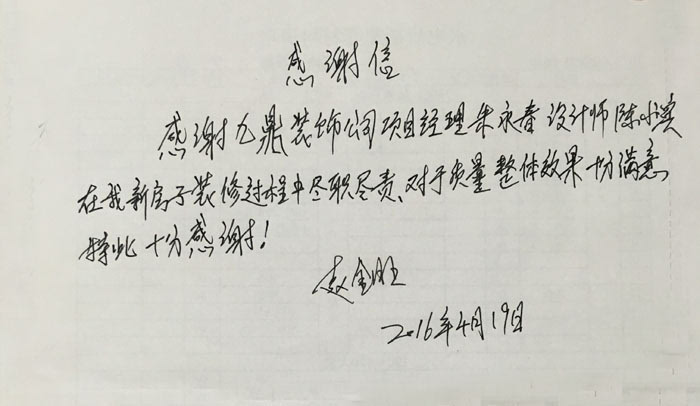 感谢信
感谢九鼎装饰公司项目经理朱永春设计师陈小滨
在我新房子装修过程中尽职尽责、对于质量整体效果十分满意
特此十分感谢!
赵金旺
2016年4月19日